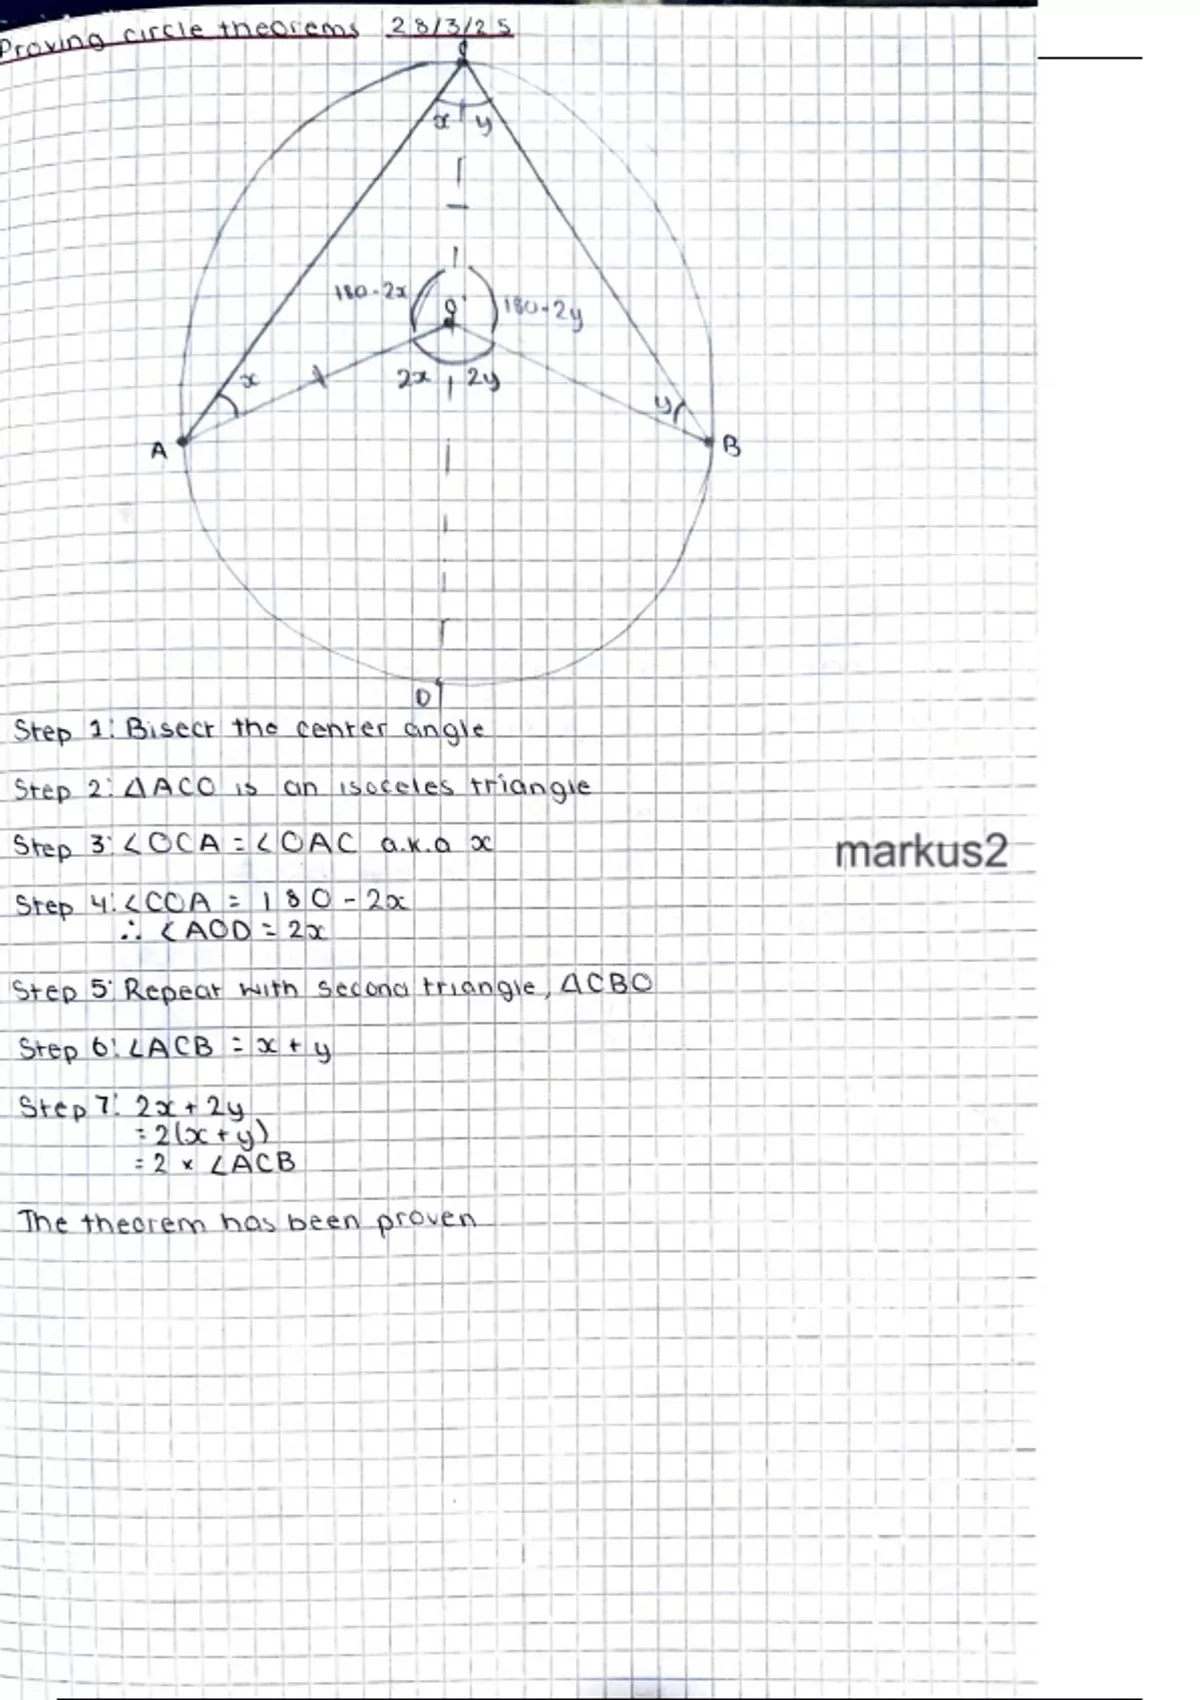 Proving circle theorems 28/3/25
C
x y
180-2x
O
180-2y
x
2x 2y
y
A
B
D
Step 1: Bisect the center angle
Step 2: △ACO is an isoceles triangle
Step 3: ∠OCA = ∠OAC a.k.a x
markus2
Step 4: ∠COA = 180 - 2x
∴ ∠AOD = 2x
Step 5: Repeat with second triangle, △CBO
Step 6: ∠ACB = x + y
Step 7: 2x + 2y
= 2(x + y)
= 2 × ∠ACB
The theorem has been proven